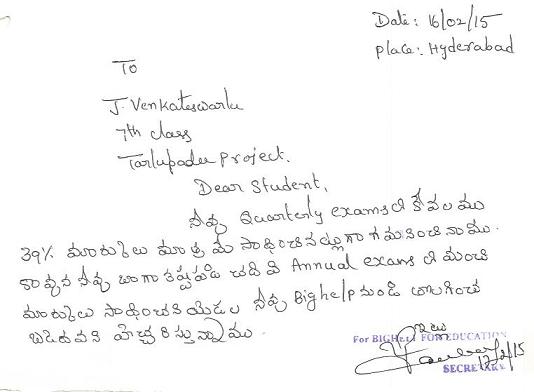 Date: 16/02/15
place: Hyderabad
To
J. Venkateswarlu
7th class
Tarlupadu project.
Dear Student,
నీవు Quarterly examsలో కేవలము
39% మార్కులు మాత్రమే సాధించినట్లుగా గమనించినాము.
కావున నీవు బాగా కష్టపడి చదివి Annual examsలో మంచి
మార్కులు సాధించని యెడల నీవు Bighelp నుండి తొలగించ
బడెదవని హెచ్చరిస్తున్నాము.
For BIGHELP FOR EDUCATION
SECRETARY